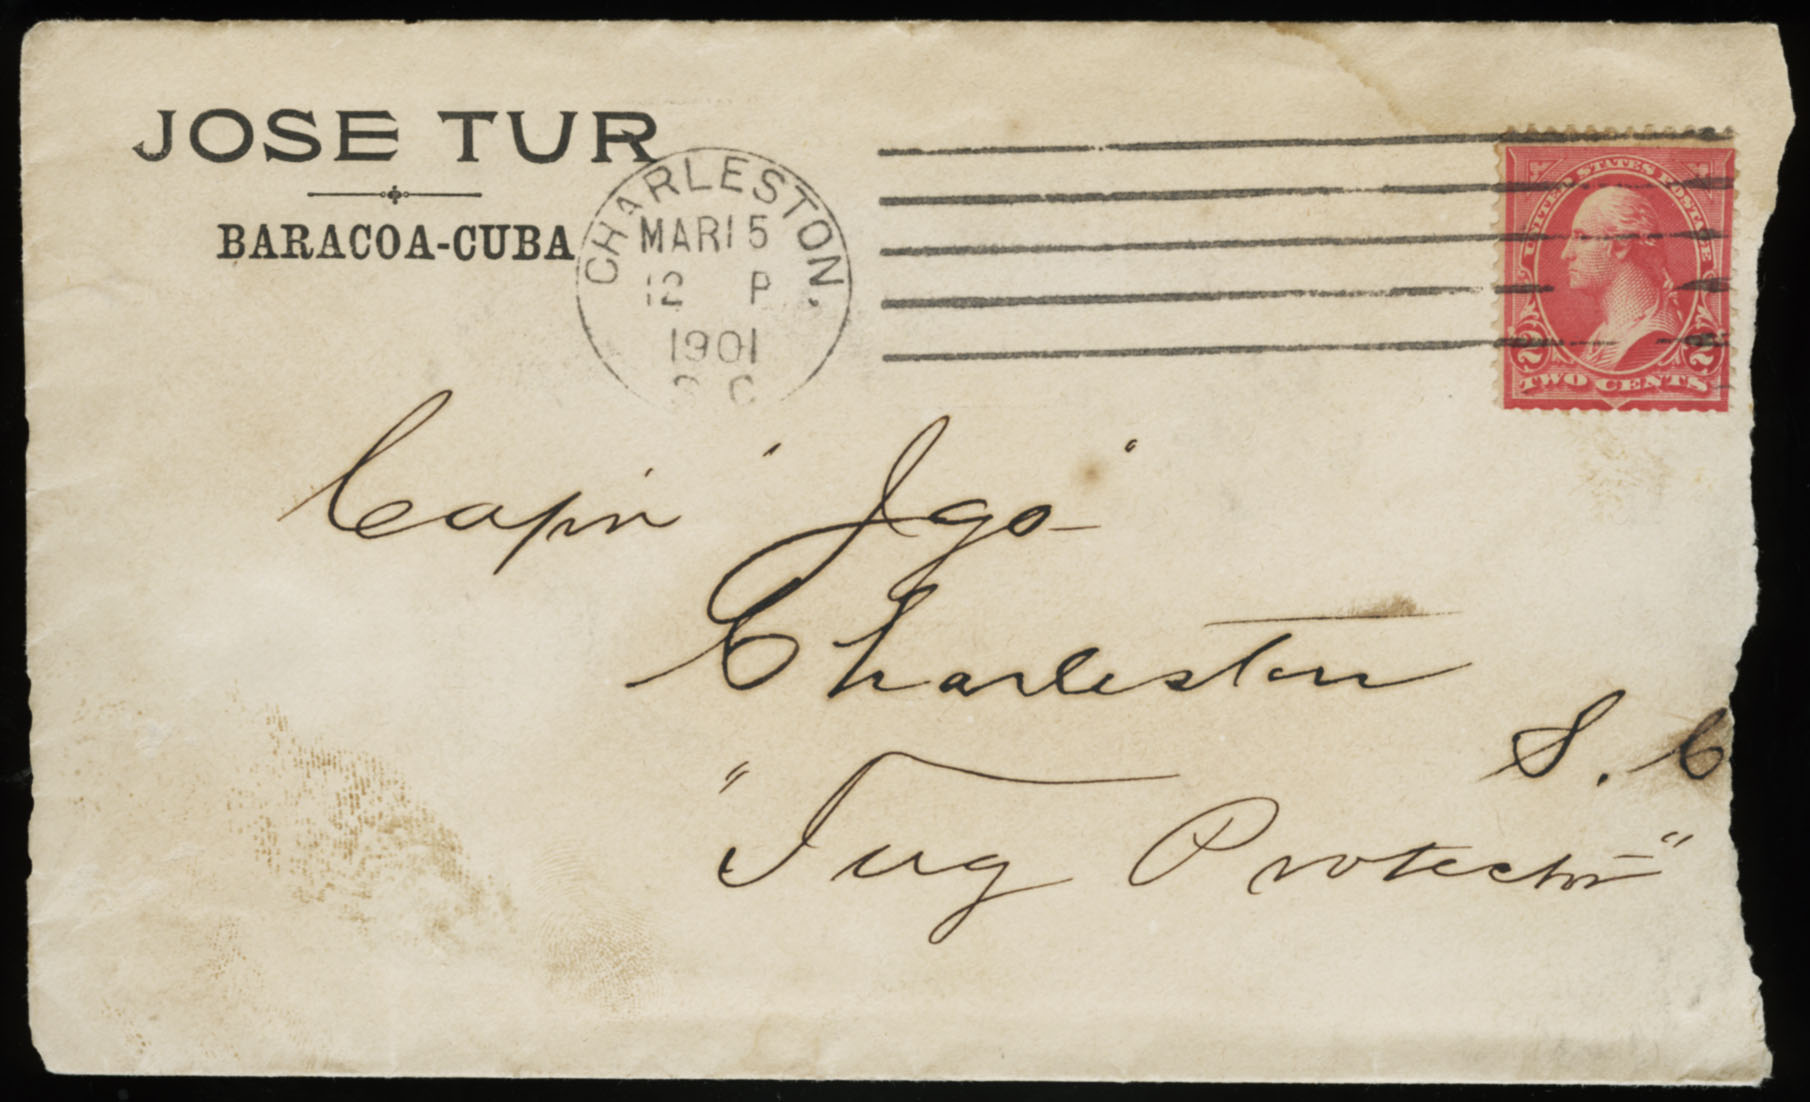 JOSE TUR
BARACOA-CUBA
CHARLESTON,
MAR 15
12 P
1901
S C
UNITED STATES POSTAGE
2 2
TWO CENTS
Capn "Igo"
Charleston
S. C
"Tug Protector"